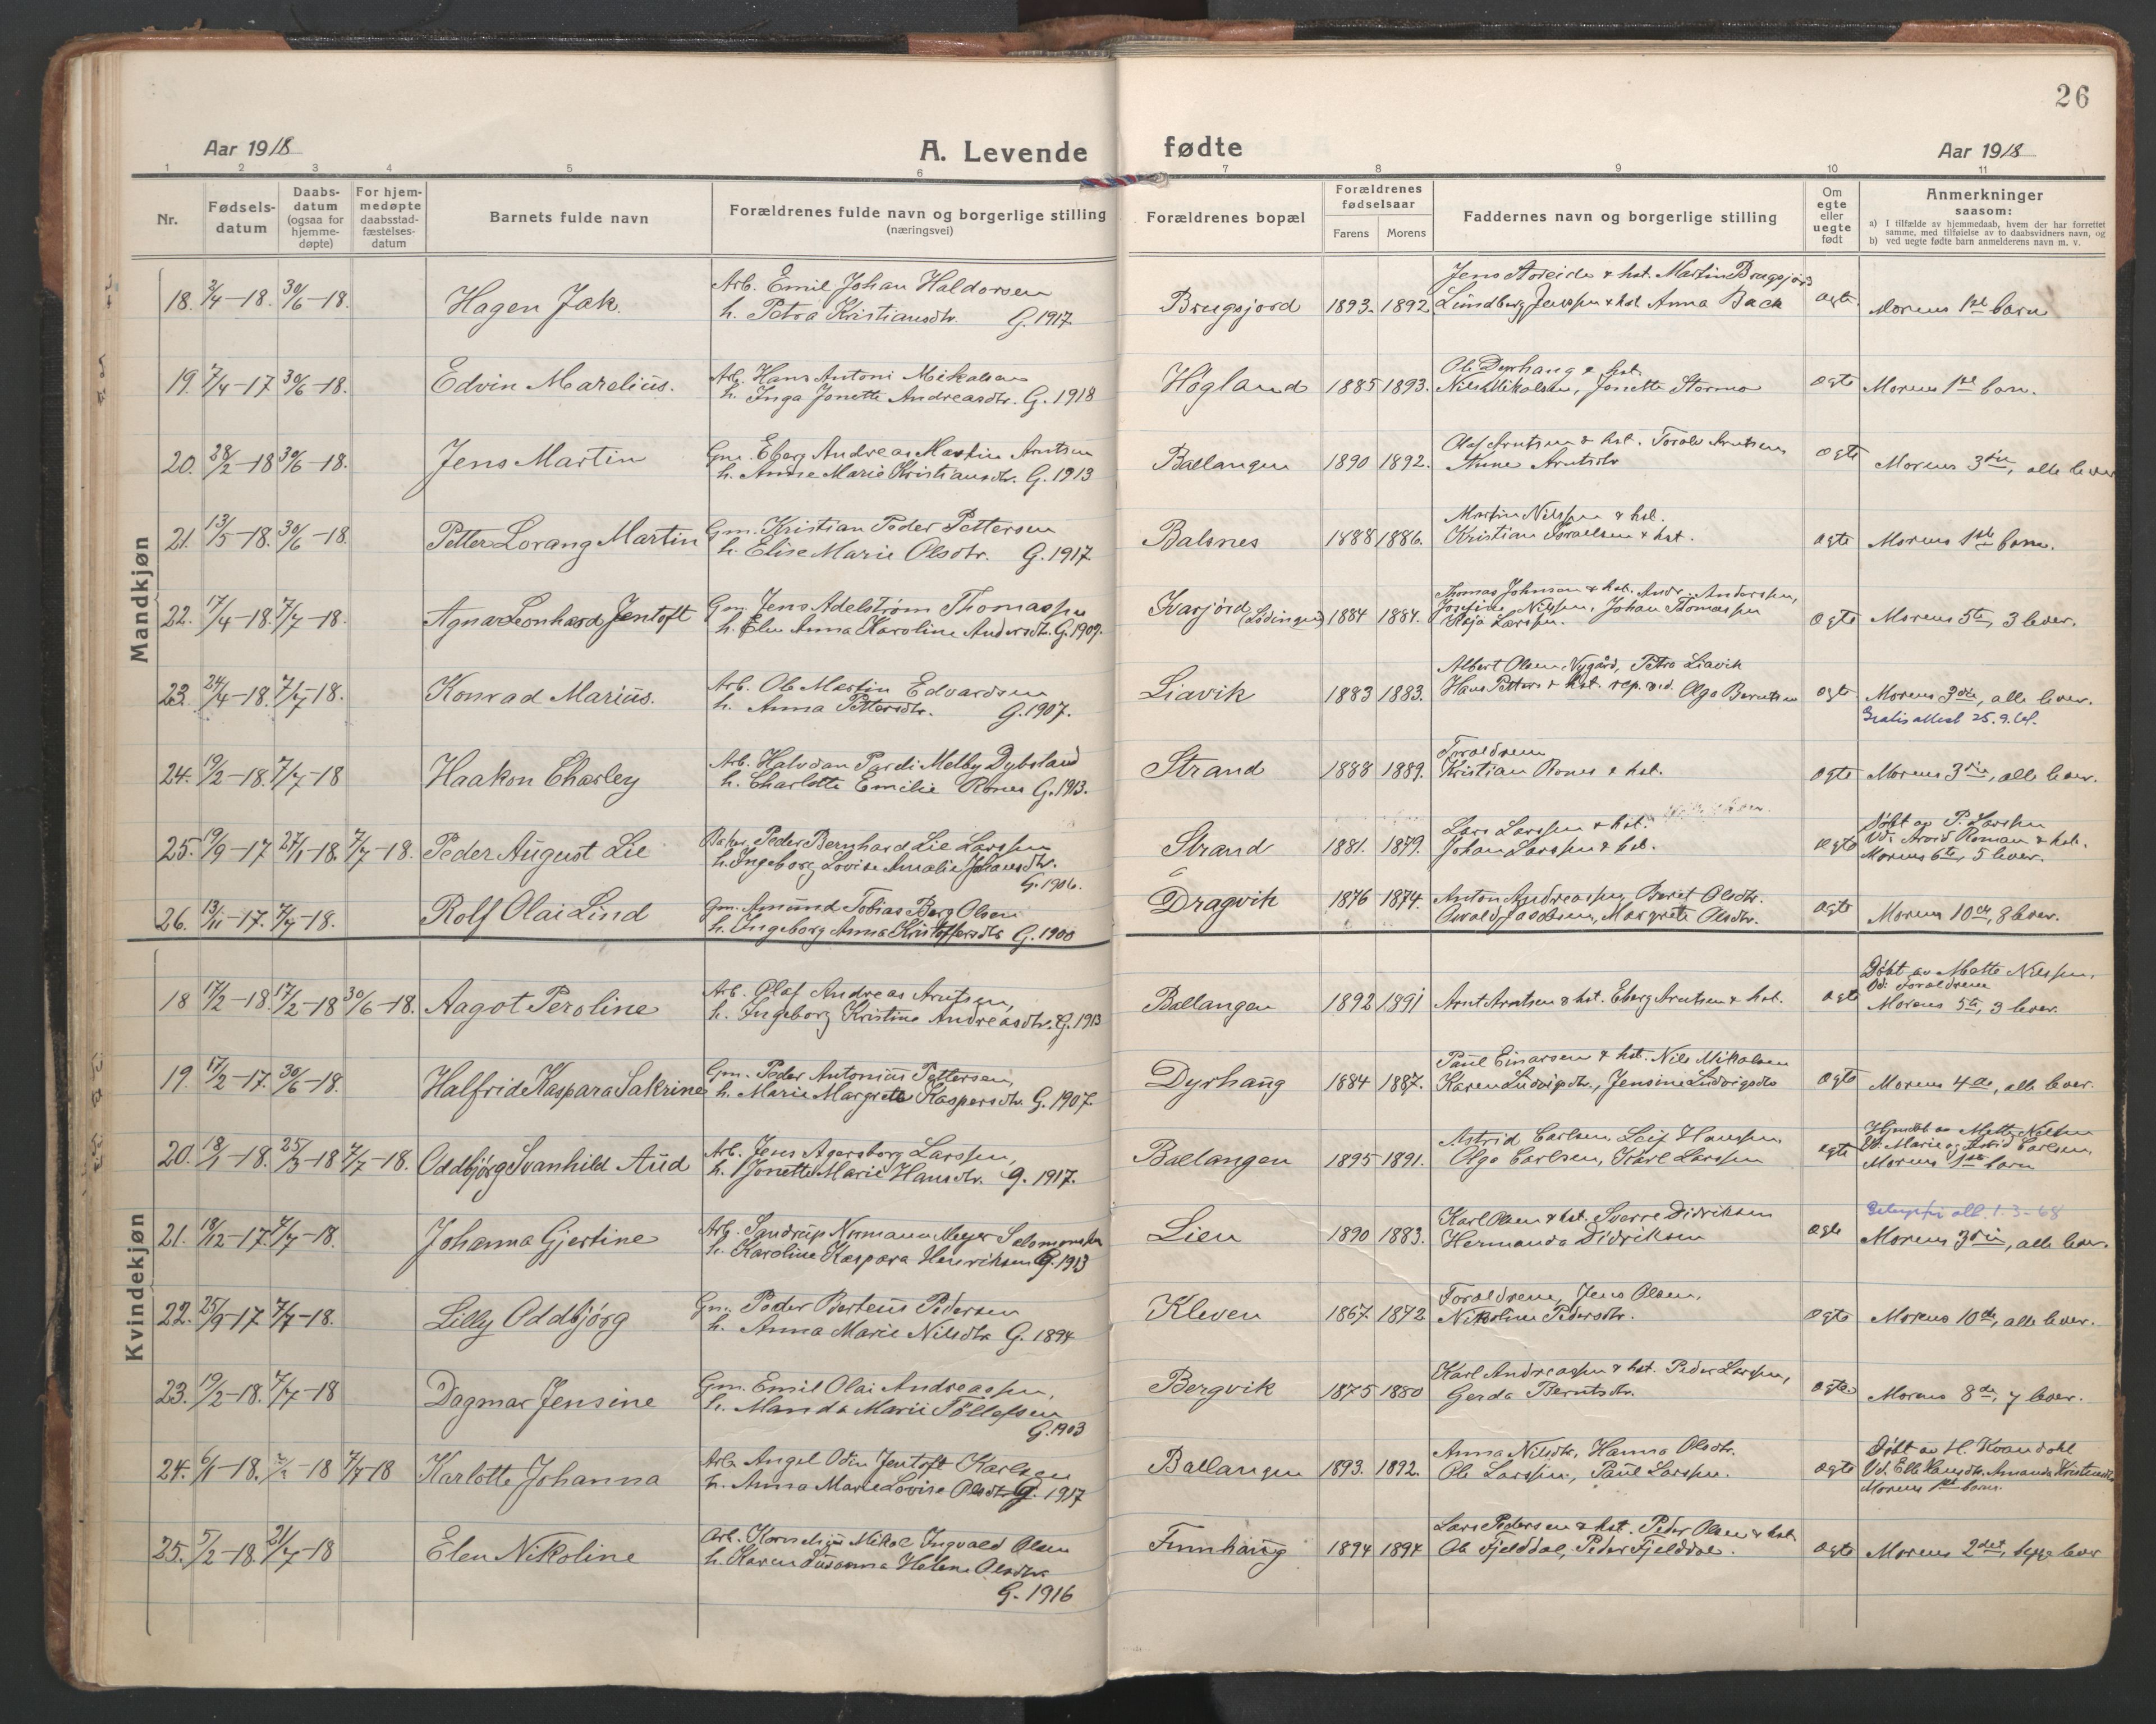 26
Aar 1918 A. Levende fødte Aar 1918
1 2 3 4 5 6 7 8 9 10 11
Nr.
Fødsels-
datum
Daabs-
datum
(ogsaa for
hjemme-
døpte)
For hjem-
medøpte
daabsstad-
fæstelses-
datum
Barnets fulde navn
Forældrenes fulde navn og borgerlige stilling
(næringsvei)
Forældrenes bopæl
Forældrenes
fødselsaar
Farens Morens
Faddernes navn og borgerlige stilling
Om
egte
eller
uegte
født
Anmerkninger
saasom:
a) I tilfælde av hjemmedaab, hvem der har forrettet
samme, med tilføielse av to daabsvidners navn, og
b) ved uegte fødte barn anmelderens navn m. v.
Mandkjøn
18. 2/4-18. 30/6-18. Hagen Jak.
Arb. Emil Johan Haldorsen
h. Petra Kristiansdtr. G. 1917
Brugsjord 1893. 1892
Jens & hst. Martin Brugsjord
Lundberg Jenssen & hst Anna Back
egte. Morens 1ste barn
19. 7/4-17 30/6-18. Edvin Marelius.
Arb. Hans Antoni Mikalsen
h. Inga Jonette Andreasdtr. G. 1918
Høgland 1885 1893.
Ole Dyrhaug & hst.
Nils Mikalsen, Jonette Stormo
egte Morens 1ste barn.
20. 28/2-18 30/6-18. Jens Martin
Gm. Eberg Andreas Martin Arntsen
h. Anne Marie Kristiansdtr. G. 1913
Ballangen 1890 1892.
Olaf Arntsen & hst. Torolv Arntsen
Anne Arntsdtr
egte Morens 3die, alle lever
21. 13/5-18. 30/6-18. Petter Lorang Martin
Gm. Kristian Peder Pettersen
h. Elise Marie Olsdtr. G. 1917
Balsnes 1888 1886.
Martin Nilssen & hst.
Kristian Israelsen & hst.
egte Morens 1ste barn.
22. 17/4-18. 7/7-18. Agnar Leonhard Jentoft
Gm. Jens Adelstrøm Thomassen
h. Elen Anna Karoline Andersdtr. G. 1909.
Ivarjord (Lødingen) 1884 1884.
Thomas Johnsen & hst. Andr. Anderssen,
Josefine Nilssen, Johan Thomassen
Kaja Larssen.
egte Morens 5te, 3 lever.
23. 24/4-18. 7/7-18. Konrad Marius.
Arb. Ole Martin Edvardsen
h. Anna Pettersdtr. G. 1907.
Liavik 1883 1883.
Albert Olsen, Nygård, Petra Liavik
Hans Petters & hst. rep. ved. Olga Berntsen
egte Morens 3die, alle lever.
Gratis attest 25.9.
24. 19/2-18. 7/7-18 Haakon Charley
Arb. Halvdan Melby Dybsland
h. Charlotte Emilie Rones G. 1913.
Strand 1888 1889.
Foraldrene
Kristian Rones & hst.
egte Morens 3die, alle lever.
25. 19/9-17 27/1-18. 7/7-18. Peder August Lie
Baker Peder Bernhard Lie Larssen
h. Ingeborg Lovise Amalie Johansdtr.
G. 1906.
Strand 1881. 1879.
Lars Larssen & hst.
Johan Larssen & hst.
egte Døbt av P. Larssen
Vd. Arvid Roman & hst.
Morens 6te, 5 lever.
26. 13/11-17. 7/7-18. Rolf Olai Lind
Gm. Amund Tobias Berg Olsen
h. Ingeborg Anna Kristoffersdtr G. 1900
Dragvik 1876 1874.
Anton Andreassen, Beret Olsdtr.
Osvald Jacobsen, Margrete Olsdtr.
egte Morens 10de, 8 lever.
Kvindekjøn
18 17/2-18. 17/2-18 30/6-18. Aagot Peroline
Arb. Olaf Andreas Arntsen,
h. Ingeborg Kristine Andreasdtr. G. 1913
Ballangen 1892 1891
Arnt Arntsen & hst. Eberg Arntsen & hst.
egte Døbt av Mette Nilssen,
Vd. Foraldrene
Morens 5te, 3 lever.
19. 17/2-17. 30/6-18. Halfrid Kaspara Sakrine
Gm. Peder Antonius Pettersen,
h. Marie Margrete Kaspersdtr. G. 1907.
Dyrhaug 1884 1887.
Paul Einarsen & hst. Nils Mikalsen
Karen Ludvigsdtr., Jensine Ludvigsdtr
egte Morens 4de, alle lever.
20. 18/1-18. 25/3-18 7/7-18. Oddbjørg Svanhild Aud
Arb. Jens Agersborg Larssen,
h. Jonette Marie Hansdtr. G. 1917.
Ballangen 1895 1891.
Astrid Carlsen, Leif Hanssen
Olga Carlsen, Karl Larssen
egte Hjemdbt. av Mette Nilssen
Vd. Marie og Astrid Carlsen,
Morens 1ste barn
21. 18/12-17. 7/7-18. Johanna Gjertine
Arb. Sandrup Normann Meyer Salomonsen
h. Karoline Kaspara Henriksen G. 1913
Lien 1890 1883.
Karl Olsen & hst. Sverre Didriksen
Hermanda Didriksen
egte 1.3-68
Morens 3die, alle lever.
22. 25/9-17 7/7-18. Lilly Oddbjørg
Gm. Peder Berteus Pedersen
h. Anna Marie Nilsdtr G. 1894
Kleven 1867 1872
Foraldrene, Jens Olsen,
Nikoline Pedersdtr.
egte Morens 10de, alle lever.
23. 19/2-18. 7/7-18 Dagmar Jensine
Gm. Emil Olai Andreassen,
h. Manda Marie Tollefsen
G. 1903
Bergvik 1875 1880
Karl Andreassen & hst. Peder Larssen,
Gerda Berntsdtr.
egte Morens 8de, 7 lever.
24. 6/1-18. -18 7/7-18 Karlotte Johanna
Arb. Angel Odin Jentoft Karlsen
h. Anna Marie Lovise Olsdtr. G. 1917
Ballangen 1893. 1892.
Anna Nilsdtr, Hanna Olsdtr.
Ole Larssen, Paul Larssen.
egte Døbt av H. Kvandahl
Vd. Elle Hansdtr. Amanda Kristensdtr
Morens 1ste barn.
25. 5/2-18. 21/7-18 Elen Nikoline
Arb. Kornelius Mikal Ingvald Olsen
h. Karen Susanna Helene Olsdtr
G. 1916
Finnhaug 1894 1894
Lars Pedersen & hst. Peder Olsen & hst
Ole Fjelddal, Peder Fjelddal.
egte Morens 2det, begge lever